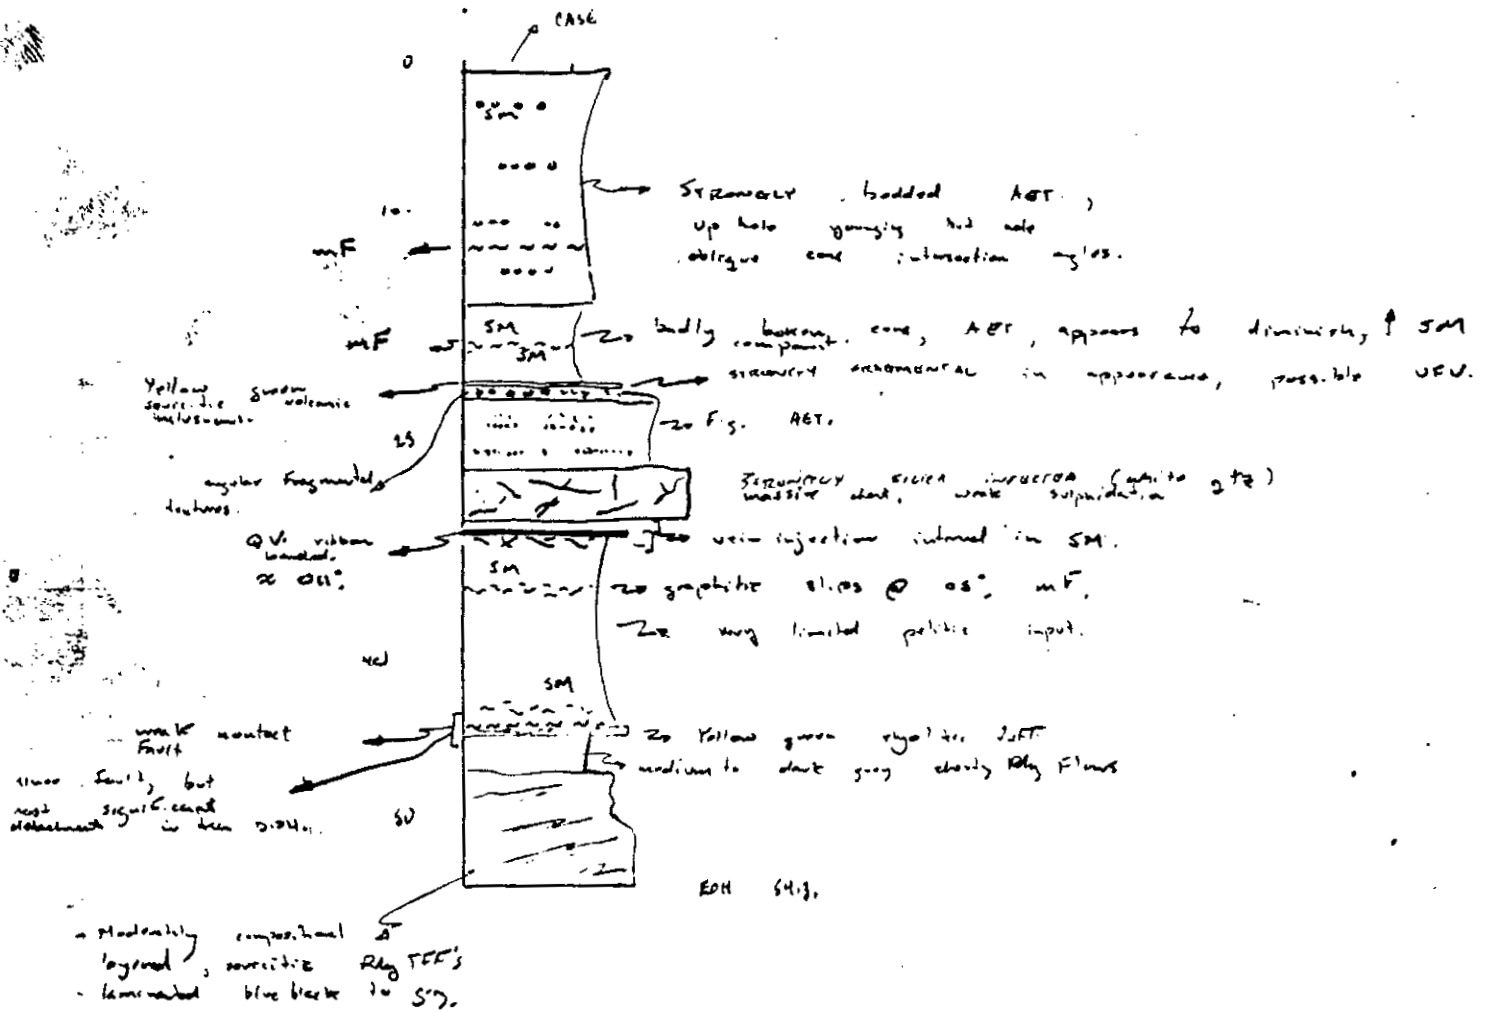 CASE
0
SM
STRONGLY bedded AET,
up hole younging but note
oblique core intersection angles.
10
mF
SM
mF
SM
badly broken core, AET, appears to diminish, ↑ SM
component.
STRONGLY FRAGMENTAL in appearance, possible
Yellow green
sericitic volcanic
25
F.g. AET.
angular Fragmental
textures.
STRONGLY SILICA INJECTED (white qtz)
massive chert, weak sulphidation
QV. ribbon
banded.
vein injection interval in SM.
SM
graphitic slips @ 05°, mF.
very limited pelitic input.
40
SM
weak contact
Fault
Yellow green rhyolitic tuff
medium to dark grey cherty Rhy Flows
minor fault, but
most significant
detachment in DDH.
50
EOH
- Moderately compositional
layered, sericitic Rhy TFF's
- laminated blue black to grey.